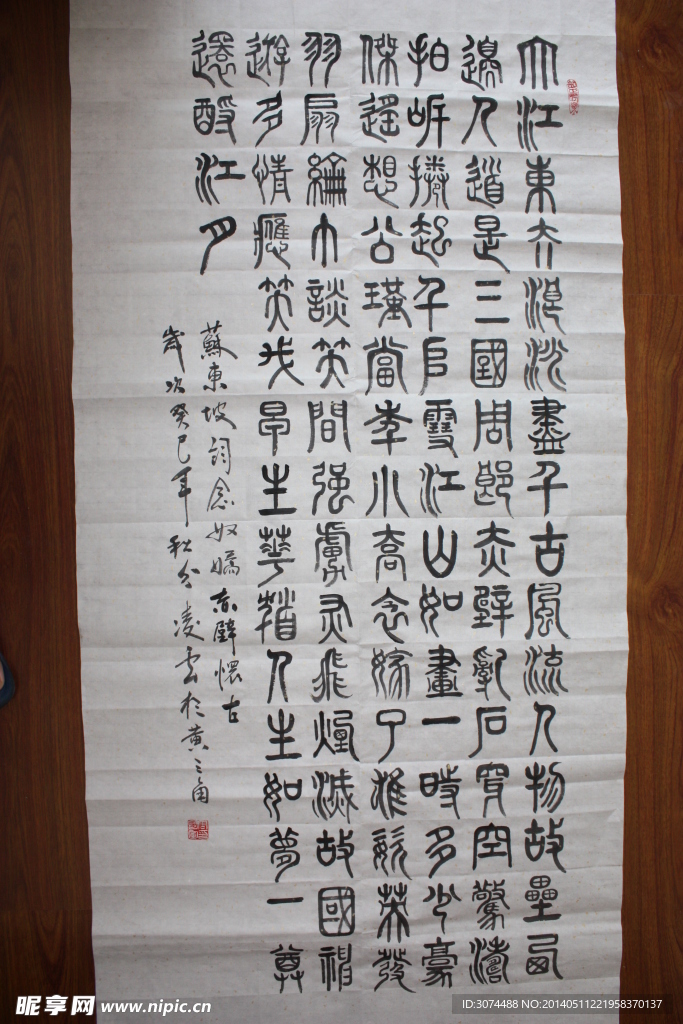 大江東去浪沙盡千古風流人物故壘西
邊人道是三國周郎赤壁亂石穿空驚濤
拍岸捲起千𠂤雪江山如畫一時多少豪
傑遙想公瑾當年小喬念嫁了雄姿英發
羽扇綸巾談笑間强虜灰飛煙滅故國神
遊多情應笑我早生華髮人生如夢一尊
還酹江月
蘇東坡詞念奴嬌赤壁懷古
歲次癸巳年秋分凌雲於黃三角
昵享网 www.nipic.cn
ID:3074488 NO:20140511221958370137